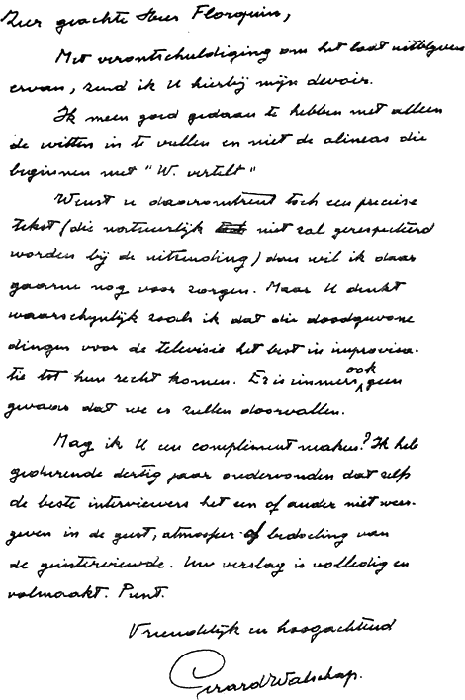 Zeer geachte Heer Florquin,
Met verontschuldiging om het laat uitblijven
ervan, zend ik U hierbij mijn devoir.
Ik meen goed gedaan te hebben met alleen
de witten in te vullen en niet de alineas die
beginnen met "W. vertelt"
Wenst u daaromtrent toch een precieze
tekst (die natuurlijk niet zal gerespecteerd
worden bij de uitzending) dan wil ik daar
gaarne nog voor zorgen. Maar U denkt
waarschynlyk zoals ik dat die doodgewone
dingen voor de televisie het best in improvisa-
tie tot hun recht komen. Er is immers ook geen
gevaar dat we er zullen doorvallen.
Mag ik U een compliment maken? Ik heb
gedurende dertig jaar ondervonden dat zelfs
de beste interviewers het een of ander niet weer-
geven in de geest, atmosfeer of bedoeling van
de geïnterviewde. Uw verslag is volledig en
volmaakt. Punt.
Vriendelijk en hoogachtend
Gerard Walschap.